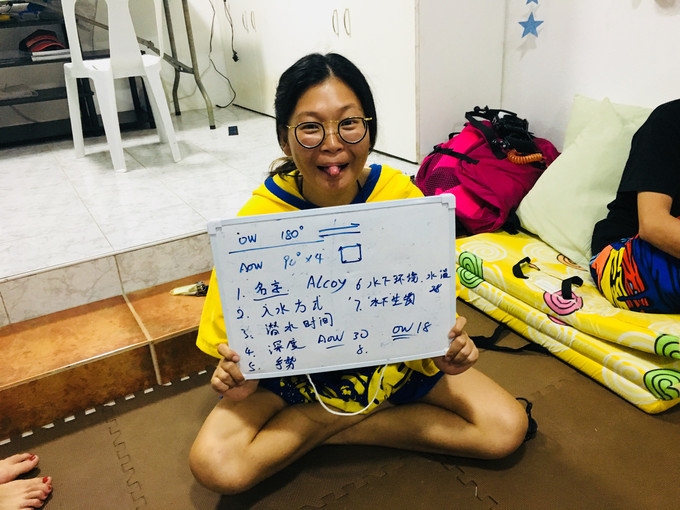 OW 180°
AOW 90° × 4
1. 名字 Alcoy
2. 入水方式
3. 潜水时间
4. 深度 AOW 30 OW 18
5. 手势
6 水下环境、水温 28
7. 水下生物
8.